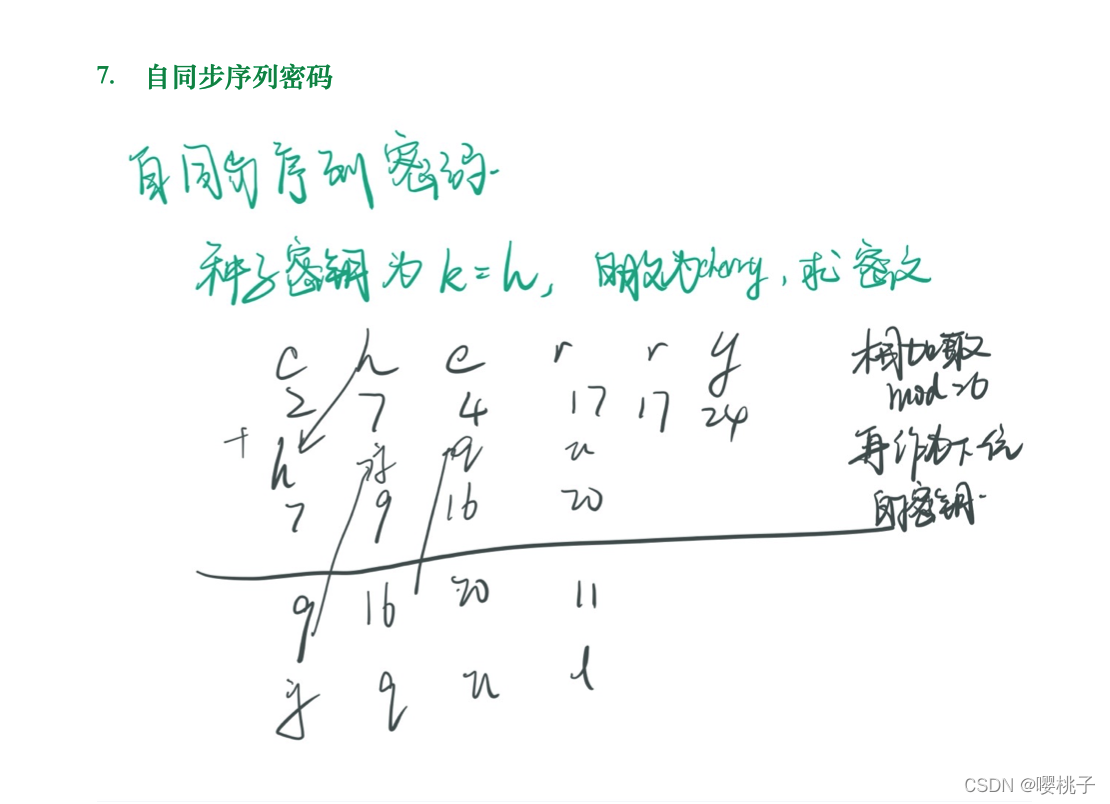 7. 自同步序列密码
自同步序列密码.
种子密钥为k=h, 明文为cherry, 求密文
c h e r r y
2 7 4 17 17 24
+ h j q u
7 9 16 20
9 16 20 11
j q u l
相加数
mod 26
再作为下一位
的密钥.
CSDN @嘤桃子